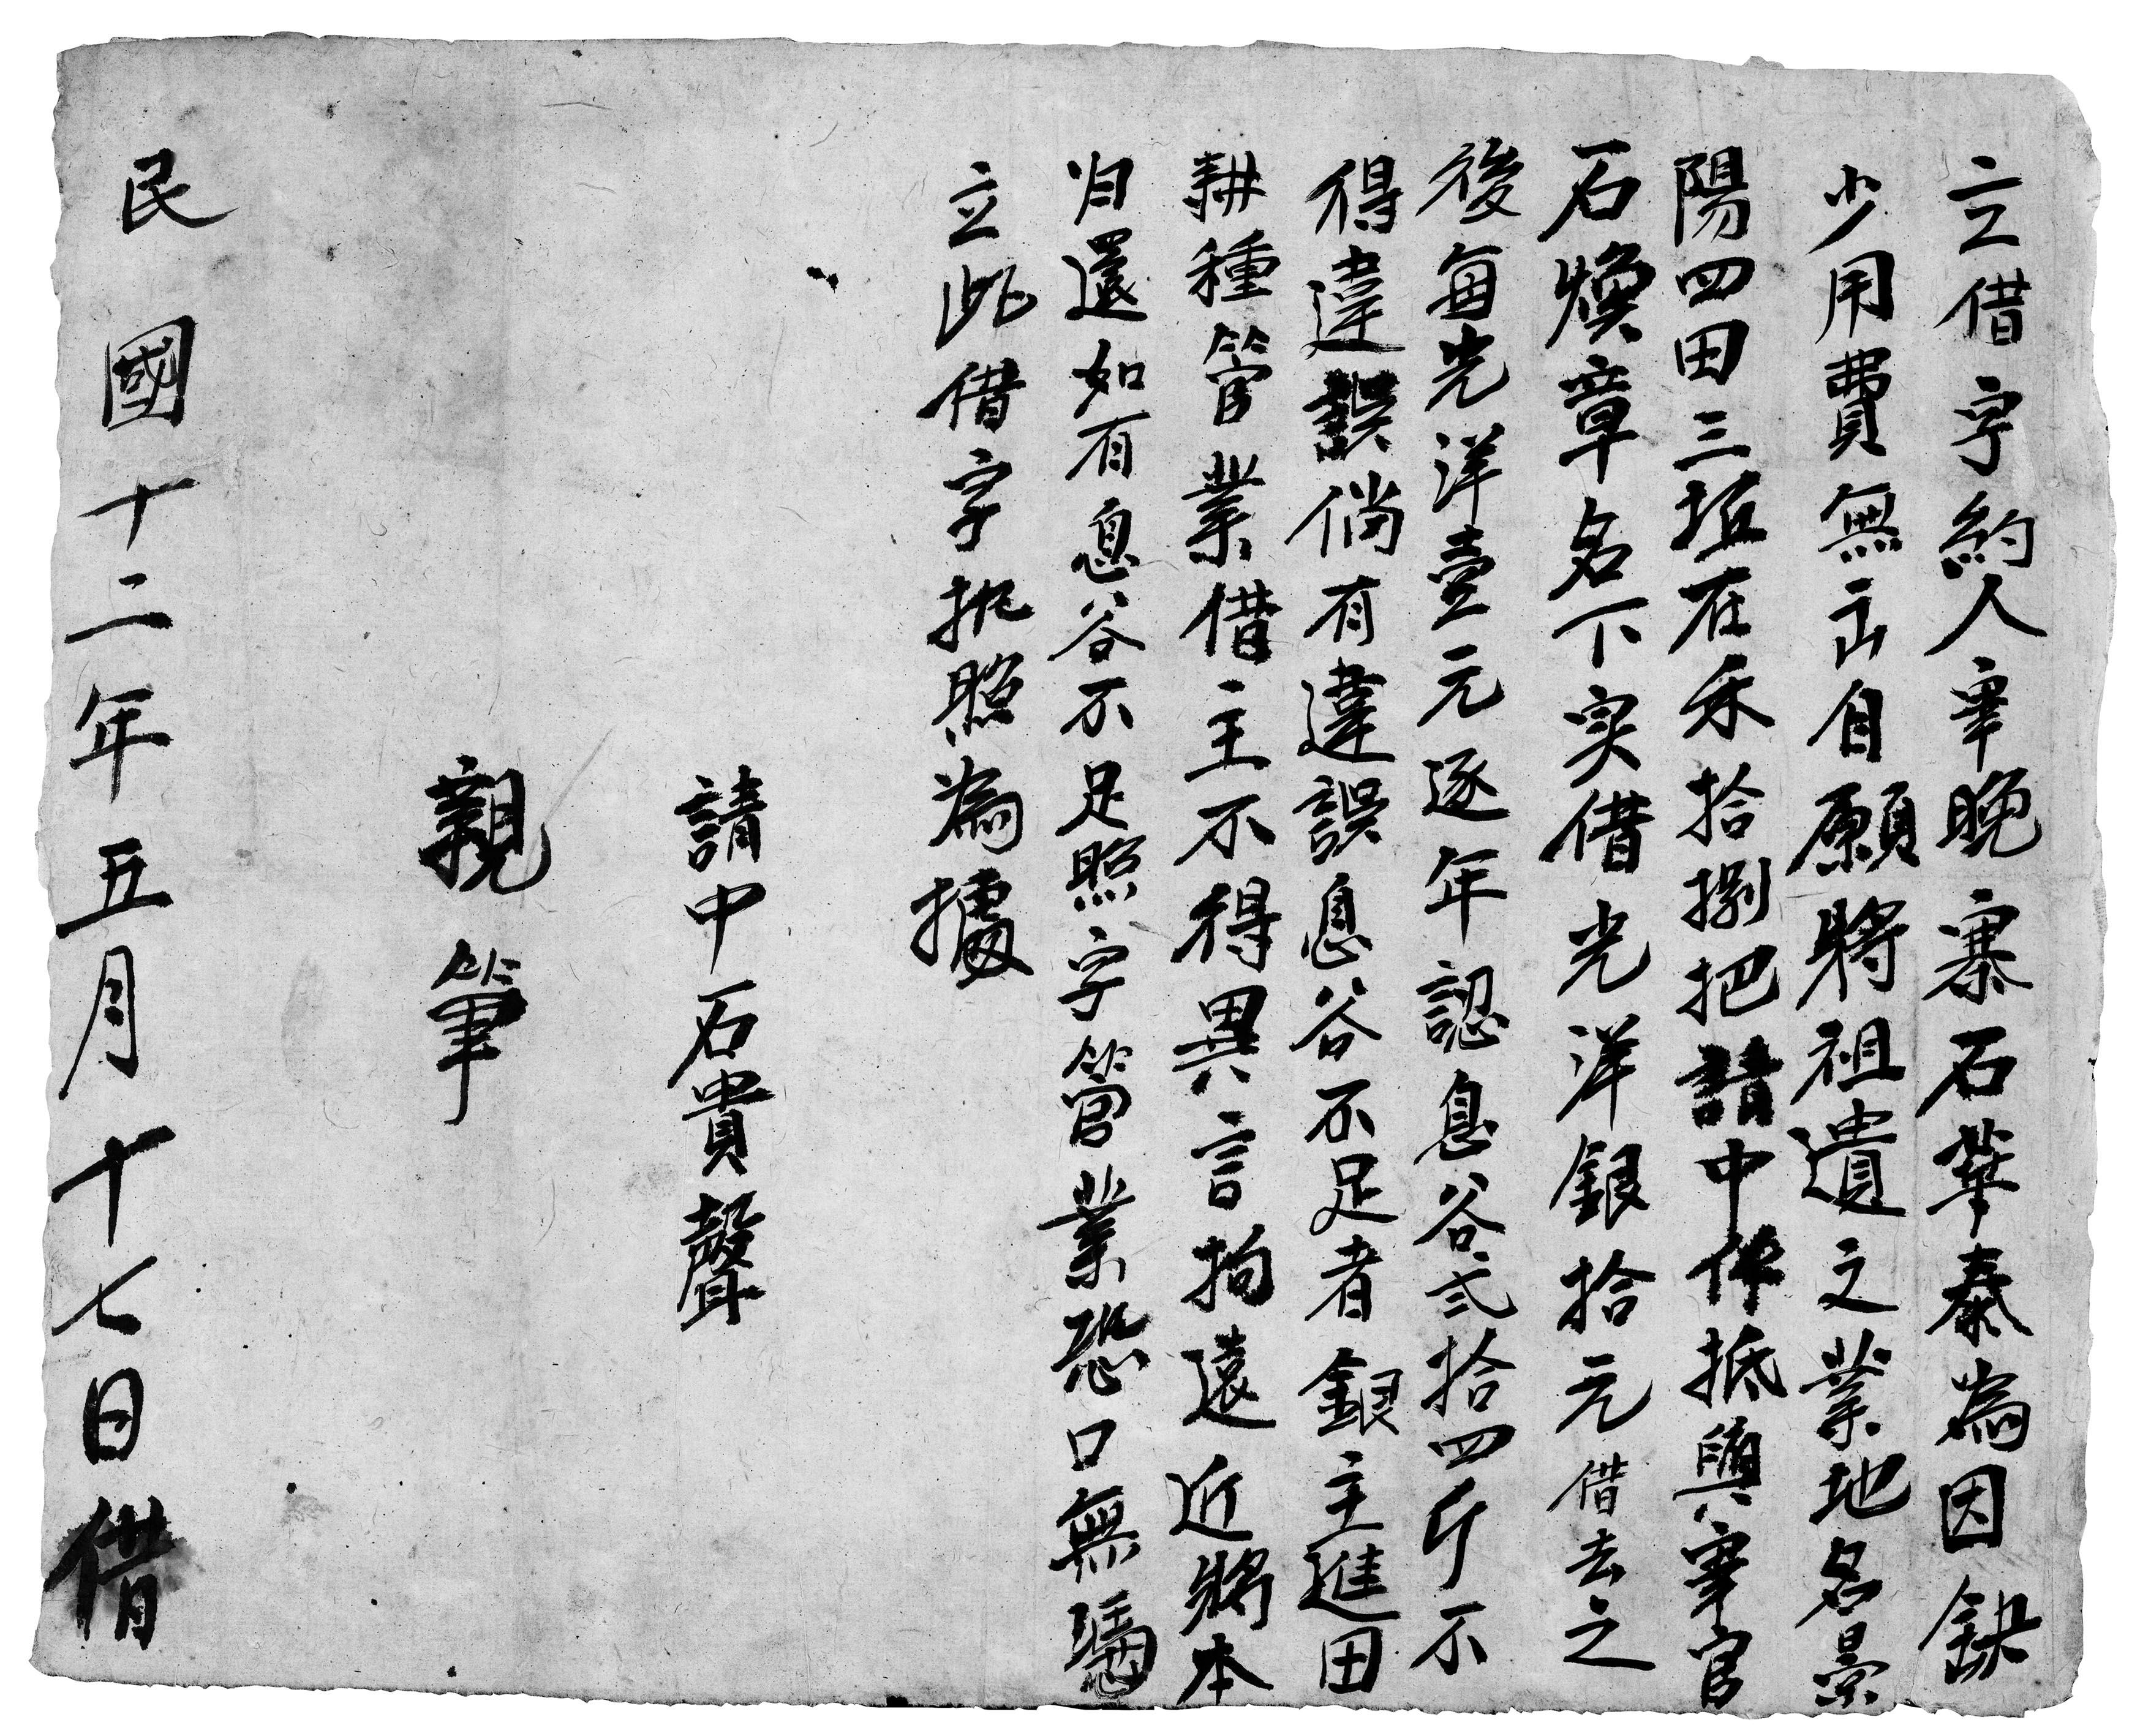 立借字約人宰晚寨石華泰為因缺
少用費無出自願將祖遺之業地名景
陽四田三坵在禾拾捌把請中作抵與宰官
石煥章名下実借光洋銀拾元借去之
後每光洋壹元逐年認息谷弍拾四斤不
得違誤倘有違誤息谷不足者銀主進田
耕種管業借主不得異言拘遠近將本
归還如有息谷不足照字管業恐口無憑
立此借字执照為據
請中石貴聲
親筆
民國十二年五月十七日借